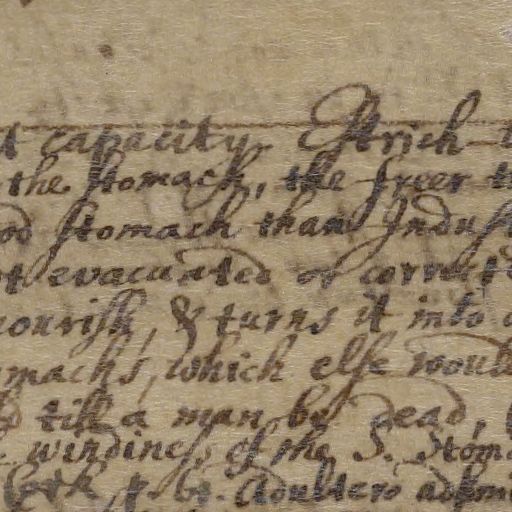 t capacity. Estrich
the stomach, the freer t
od stomach than Indust
ot evacuated or corrupt
nourish, & turns it into
omachs, which else would
till a man be dead,
windiness of the S. Stom
Adulterò admi